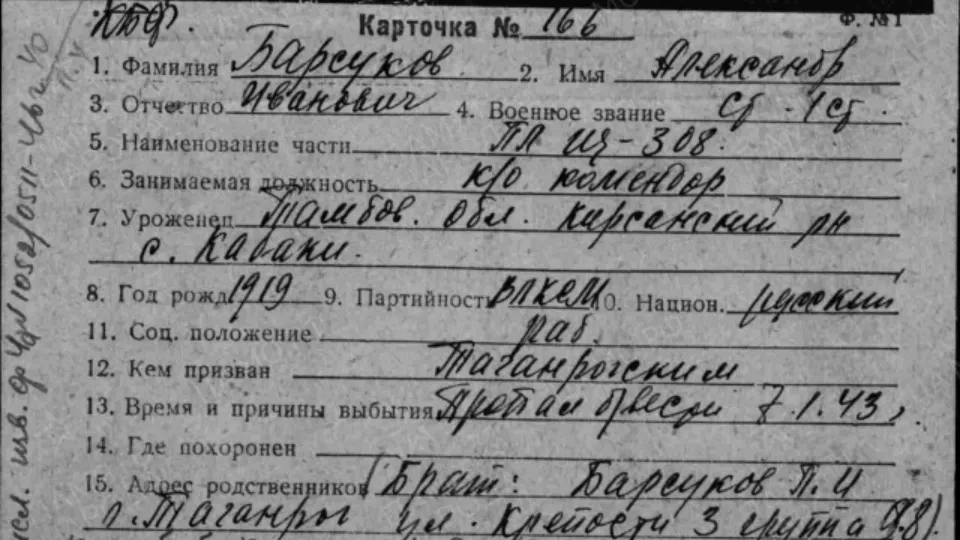 КБФ. Карточка № 166 Ф. №1
1. Фамилия Барсуков 2. Имя Александр
3. Отчество Иванович 4. Военное звание ст - 1 ст.
5. Наименование части ПЛ Щ-308.
6. Занимаемая должность к/о комендор
7. Уроженец Тамбов. обл. Кирсанский рн
с. Кабаки.
8. Год рожд 1919 9. Партийность ВЛКСМ 10. Национ. русский
11. Соц. положение раб.
12. Кем призван Таганрогским
13. Время и причины выбытия Пропал б/вести 7.1.43,
14. Где похоронен
15. Адрес родственников (Брат: Барсуков П.И
г. Таганрог ул. Крепости 3 группа д.8).